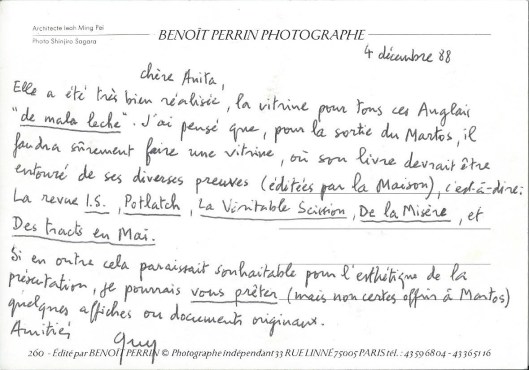 Architecte Ieoh Ming Pei
Photo Shinjiro Sagara
BENOÎT PERRIN PHOTOGRAPHE
4 décembre 88
chère Anita,
Elle a été très bien réalisée, la vitrine pour tous ces Anglais
"de mala leche". J'ai pensé que, pour la sortie du Martos, il
faudra sûrement faire une vitrine, où son livre devrait être
entouré de ses diverses preuves (éditées par la Maison), c'est-à-dire:
La revue I.S., Potlatch, La Véritable Scission, De la Misère, et
Des tracts en Mai.
Si en outre cela paraissait souhaitable pour l'esthétique de la
présentation, je pourrais vous prêter (mais non certes offrir à Martos)
quelques affiches ou documents originaux.
Amitiés
Guy
260 - Édité par BENOÎT PERRIN © Photographe indépendant 33 RUE LINNÉ 75005 PARIS tél. : 43 59 68 04 - 43 36 51 16